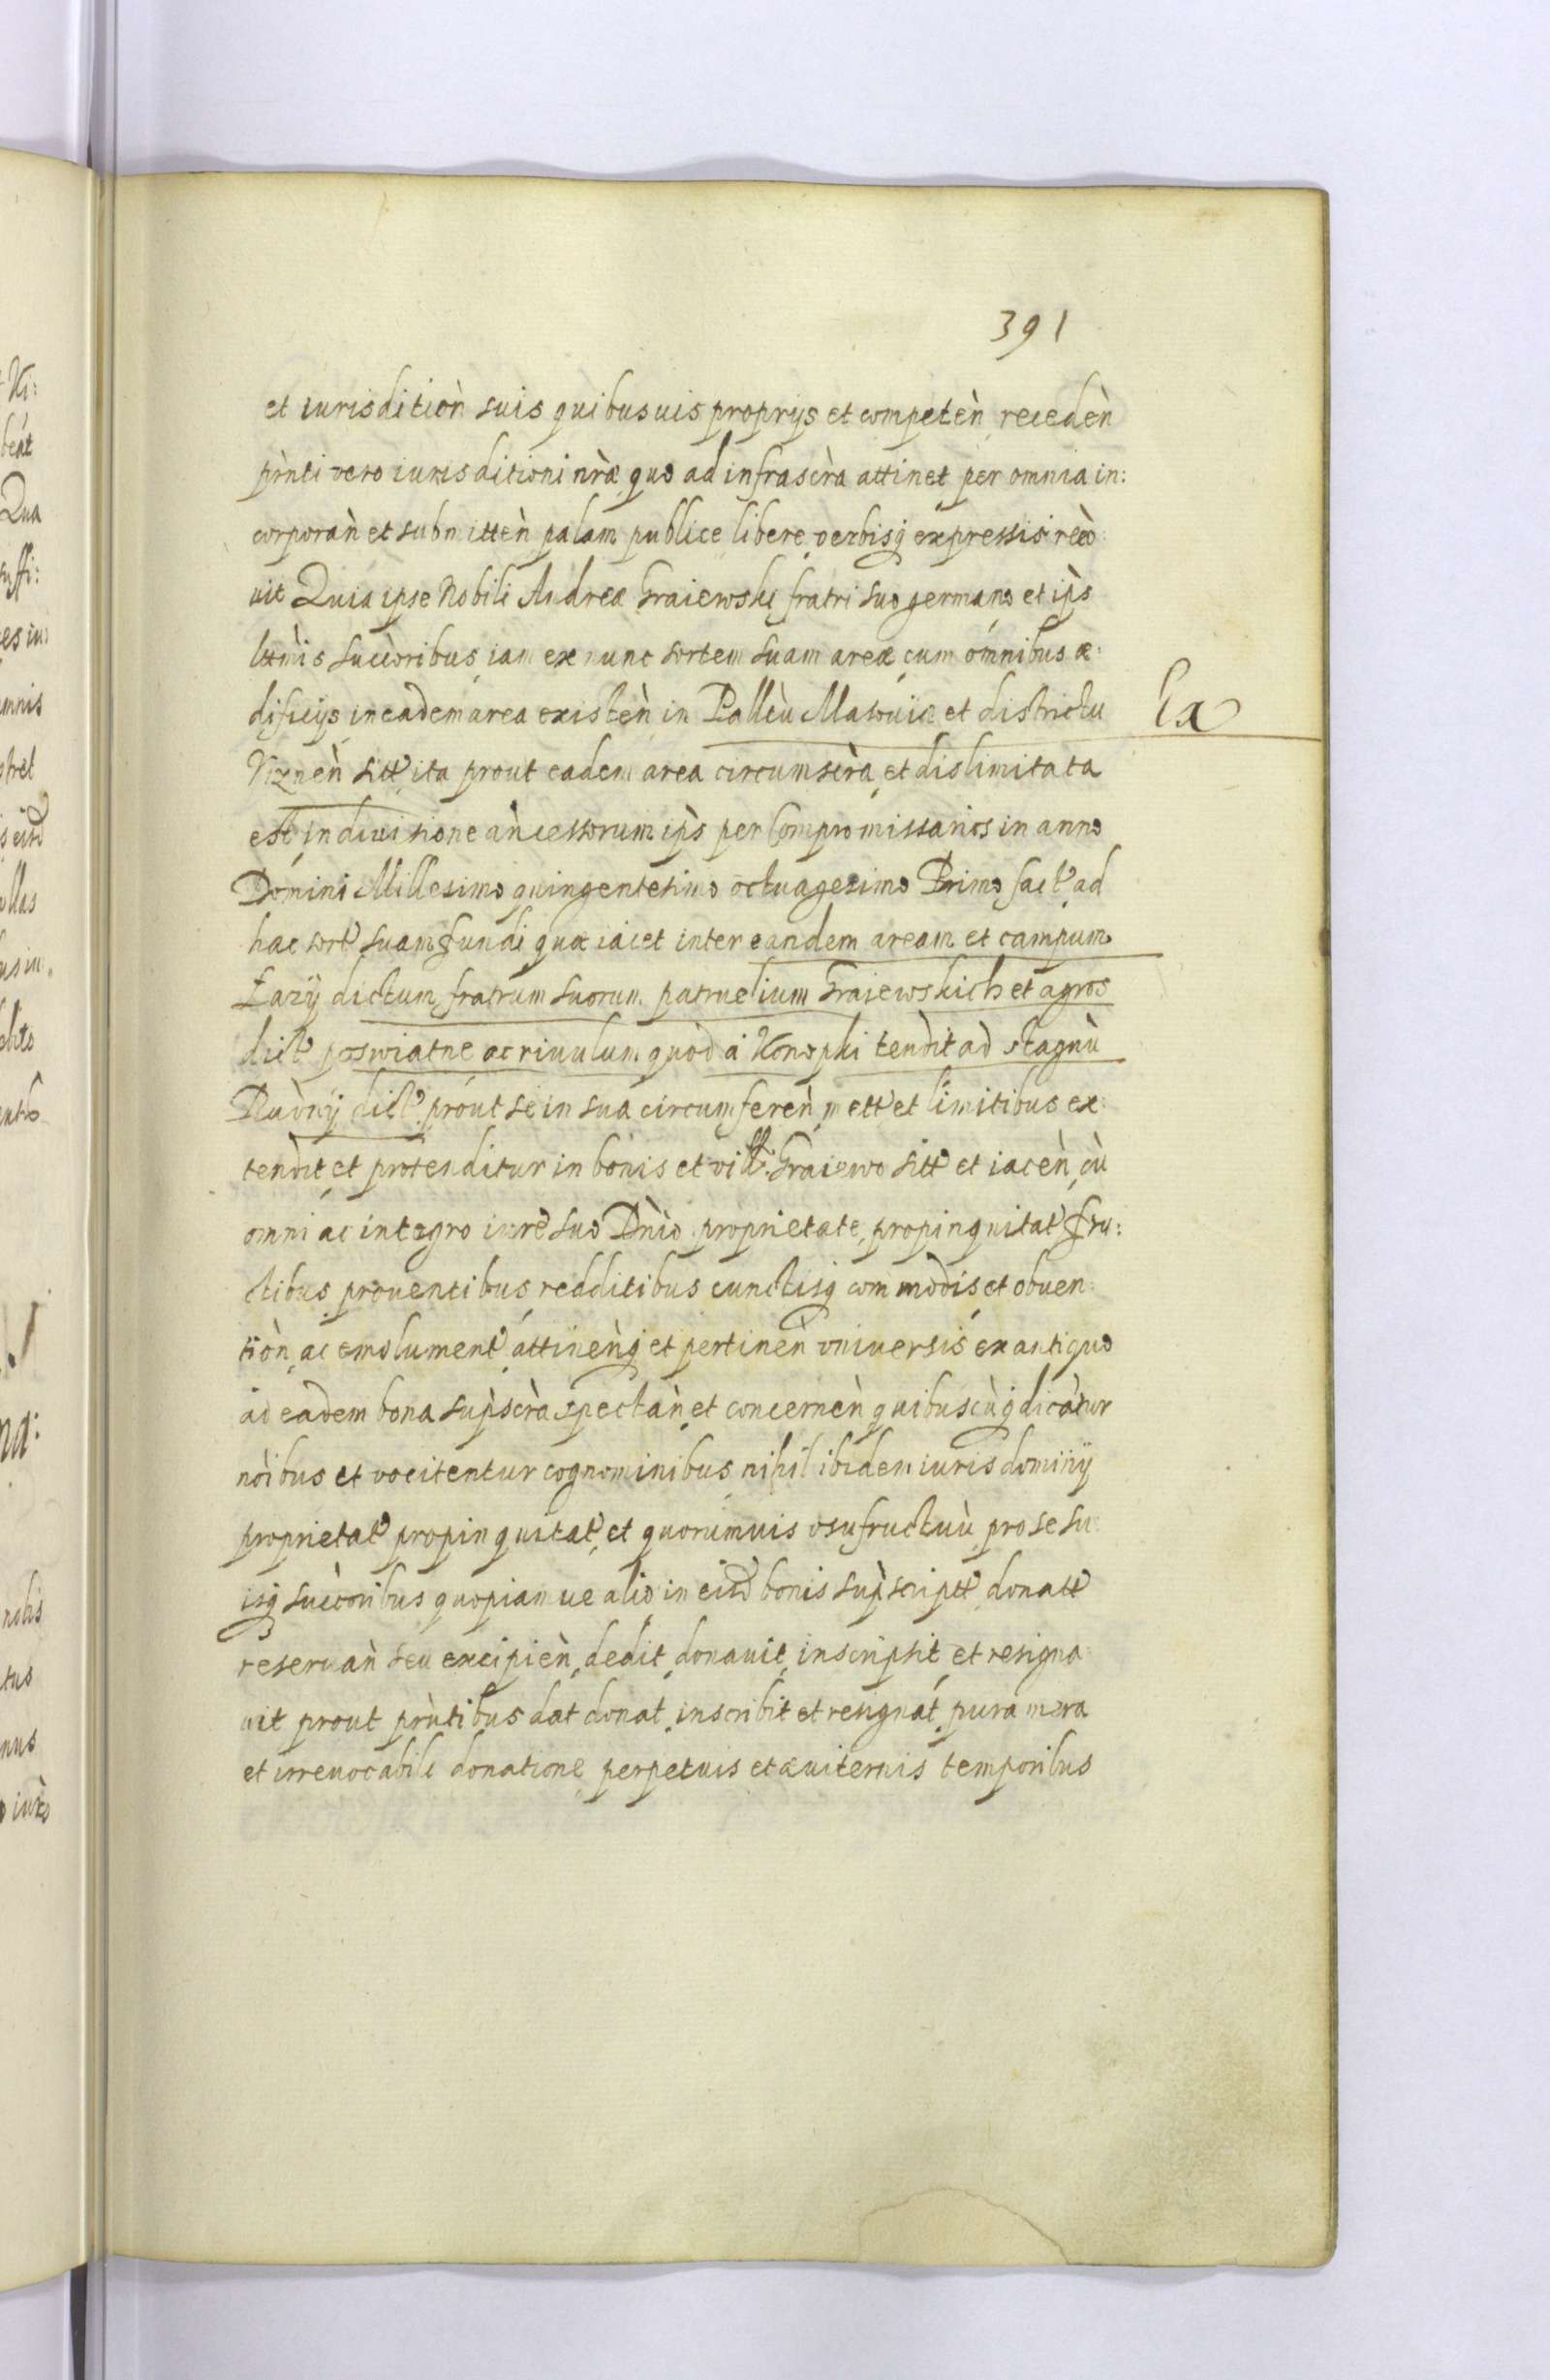 391
et iurisdition̄ suis quibusuis proprijs et competen̄ receden̄
prn̄ti vero iurisditioni nrǣ quo ad infrascrā attinet per omnia in:
corporan̄ et submitten̄ palam publice libere verbisq expressis reco
uit Quia ipse Nobili Andreæ Graiewski fratri suo germano et ip̄s
lttm̄is succoribus iam ex nunc sortem suam areæ cum omnibus æ:
dificijs in eadem area existen̄ in Pallcū Masouiæ et districtu
Ex
Viznen̄ sitt ita prout eadem area circumscrā et dislimitata
est in diuisione ancessorum ip̄s per Compromissarios in anno
Domini Millesimo quingentesimo octuagesimo Primo fact ad
hac sort suam fundi quæ iacet inter eandem aream et campum
Łazÿ dictum fratrum suorum patruelium Graiewskich et agros
dict poswiatne ac riuulum quod a Konopki tendit ad stagnū
Rudnÿ dict prout se in sua circumferen̄ mett et limitibus ex:
tendit et protenditur in bonis et vill Graiewo sitt et iacen̄ cū
omni ac integro iure suo Dn̄io proprietate propinquitat fru:
ctibus prouentibus redditibus cunctisq commodis et obuen:
tion̄ ac emolument attinen̄q et pertinen̄ vniuersis ex antiquo
ad eadem bona sup̄scrā spectan̄ et concernen̄ quibuscūq dicātur
nōibus et vocitentur cognominibus nihil ibidem iuris dominÿ
proprietat propinquitat et quorumuis vsufructuū pro se su
isq succoribus quopiam ue alio in eisd bonis sup̄scriptt donatt
reseruan̄ seu excipien̄ dedit donauit inscripsit et resigna
uit prout prn̄tibus dat donat inscribit et resignat pura mera
et irreuocabili donatione perpetuis et æuiternis temporibus